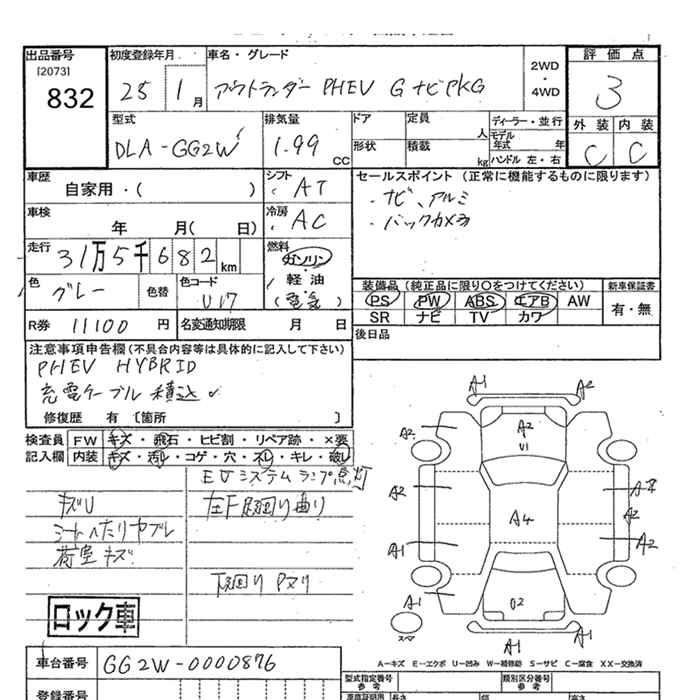 出品番号
[2073]
832
初度登録年月
25 1月
車名・グレード
アウトランダー PHEV G ナビPKG
2WD
・
4WD
評価点
3
外装 内装
C C
型式
DLA-GG2W
排気量
1.99 CC
ドア
定員 人
形状
積載 kg
ディーラー・並行
モデル年式 年
ハンドル 左・右
車歴
自家用・( )
シフト
AT
セールスポイント (正常に機能するものに限ります)
・ナビ、アルミ
・バックカメラ
車検
年 月( 日)
冷房
AC
走行
31万5千682km
燃料
ガソリン
・
軽・油
(電気)
色
グレー
色替
色コード
U17
装備品 (純正品に限り○をつけてください)
新車保証書
PS PW ABS エアB AW
SR ナビ TV カワ
有・無
R券 11100円
名変通知期限 月 日
後日品
注意事項申告欄(不具合内容等は具体的に記入して下さい)
PHEV HYBRID
充電ケーブル積込
修復歴 有 [箇所 ]
検査員 FW キズ・飛石・ヒビ割・リペア跡・×要
記入欄 内装 キズ・汚レ・コゲ・穴・スレ・キレ・破レ
EVシステムランプ点灯
キズU
左F足廻り曲り
シートへたりヤブレ
荷室キズ
下廻りPヌリ
ロック車
A1 A2
A2 A2
U1
A2 A4
A2
A1 A2
A1 U2
スペア
A1 A1
A−キズ E−エクボ U−凹み W−補修跡 S−サビ C−腐食 XX−交換済
車台番号
GG2W-0000876
型式指定番号
参考
類別区分番号
参考
登録番号
長さ 幅 高さ